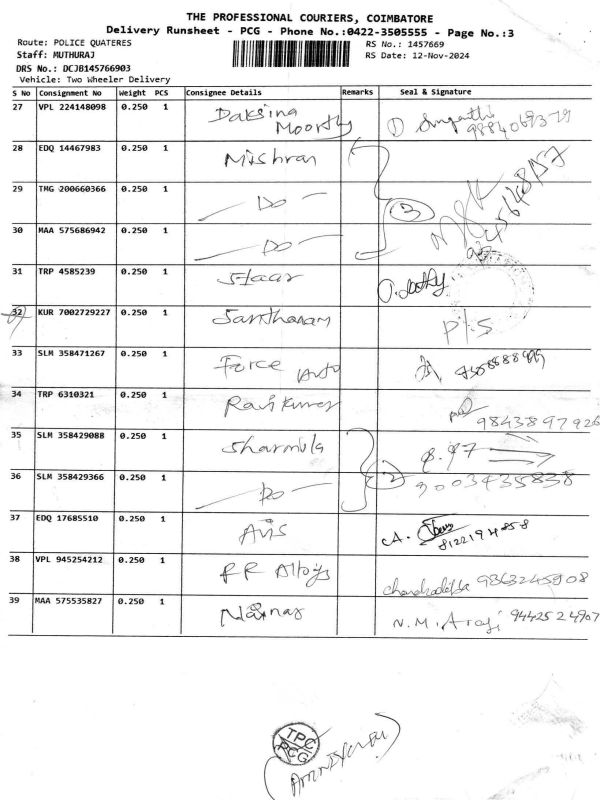 THE PROFESSIONAL COURIERS, COIMBATORE
Delivery Runsheet - PCG - Phone No.:0422-3505555 - Page No.:3
Route: POLICE QUATERES RS No.: 1457669
Staff: MUTHURAJ RS Date: 12-Nov-2024
DRS No.: DCJB145766903
Vehicle: Two Wheeler Delivery
S No Consignment No Weight PCS Consignee Details Remarks Seal & Signature
27 VPL 224148098 0.250 1 Daksina Moorthy
28 EDQ 14467983 0.250 1 Mishran
29 TMG 200660366 0.250 1 — Do — 3
30 MAA 575686942 0.250 1 — Do —
31 TRP 4585239 0.250 1 Staar
32 KUR 7002729227 0.250 1 Santhanam P/S
33 SLM 358471267 0.250 1 Force Auto
34 TRP 6310321 0.250 1 Ravi Kumar 9843897926
35 SLM 358429088 0.250 1 Sharmila
36 SLM 358429366 0.250 1 — Do — 2 9003435838
37 EDQ 17685510 0.250 1 Avis
38 VPL 945254212 0.250 1 RR Alloys 9863245908
39 MAA 575535827 0.250 1 Nainar N.M. 9442524907
TPC
PCG